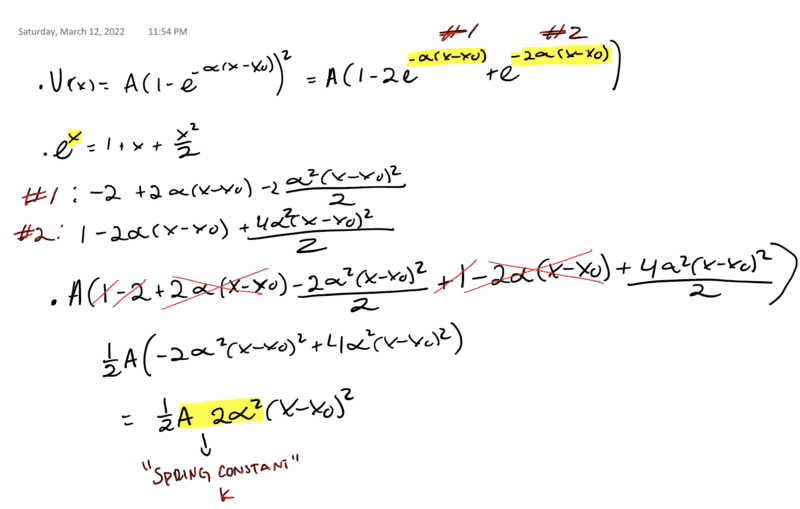 Saturday, March 12, 2022 11:54 PM
#1 #2
. U(x) = A(1-e^{-α(x-x0)})^2 = A(1-2e^{-α(x-x0)} + e^{-2α(x-x0)})
. e^x = 1 + x + x^2/2
#1 : -2 + 2α(x-x0) - 2 α^2(x-x0)^2/2
#2 : 1 - 2α(x-x0) + 4α^2(x-x0)^2/2
. A(1-2+2α(x-x0) - 2α^2(x-x0)^2/2 + 1 - 2α(x-x0) + 4α^2(x-x0)^2/2)
1/2 A(-2α^2(x-x0)^2 + 4α^2(x-x0)^2)
= 1/2 A 2α^2 (x-x0)^2
↓
"SPRING CONSTANT"
K